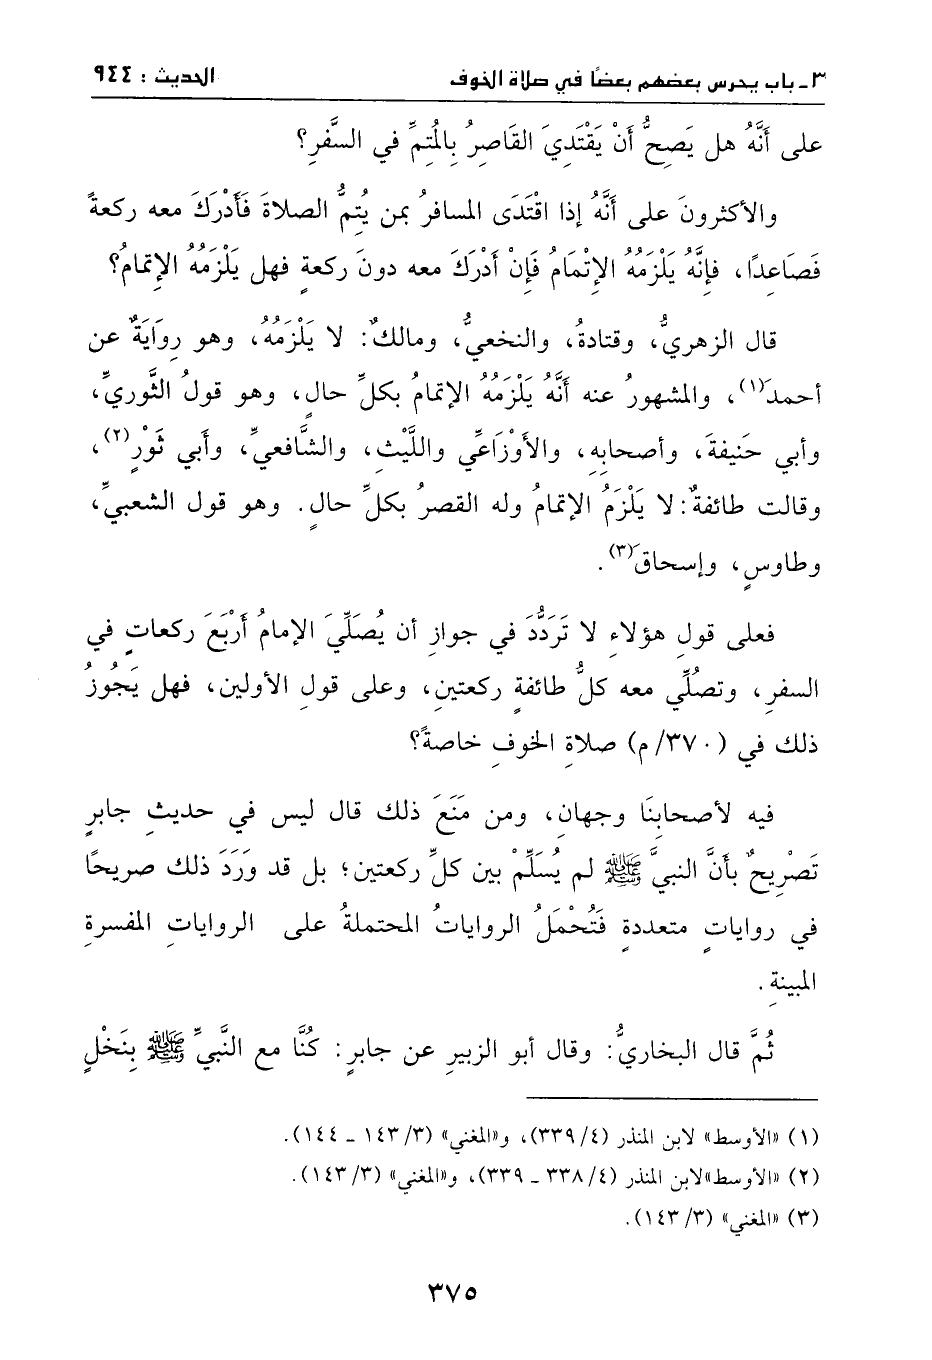 ٣ ـ باب يحرس بعضهم بعضًا في صلاة الخوف الحديث : ٩٤٤
على أَنَّهُ هل يَصِحُّ أَنْ يَقْتَدِيَ القَاصِرُ بِالمُتِمِّ في السَّفَرِ؟
والأكثرونَ على أَنَّهُ إذا اقْتَدَى المسافرُ بمن يُتِمُّ الصلاةَ فَأَدْرَكَ معه ركعةً
فَصَاعِدًا، فإِنَّهُ يَلْزَمُهُ الإتْمَامُ فَإِنْ أَدْرَكَ معه دونَ ركعةٍ فهل يَلْزَمُهُ الإِتمامُ؟
قال الزهريُّ، وقتادةُ، والنخعيُّ، ومالكٌ: لا يَلْزَمُهُ، وهو رِوَايَةٌ عن
أحمدَ(١)، والمشهورُ عنه أَنَّهُ يَلْزَمُهُ الإتمامُ بكلِّ حالٍ، وهو قولُ الثَّوريِّ،
وأبي حَنيفةَ، وأصحابِهِ، والأَوْزَاعِّي واللَّيْثِ، والشَّافعيِّ، وأبي ثَوْرٍ(٢)،
وقالت طائفةٌ: لا يَلْزَمُ الإتمامُ وله القصرُ بكلِّ حالٍ. وهو قول الشعبيِّ،
وطاوسٍ، وإسحاقَ(٣).
فعلى قولِ هؤلاءِ لا تَرَدُّدَ في جوازِ أن يُصَلِّيَ الإمامُ أَرْبَعَ ركعاتٍ في
السفرِ، وتصُلِّي معه كلُّ طائفةٍ ركعتينِ، وعلى قولِ الأولين، فهل يَجُوزُ
ذلك في (٣٧٠/م) صلاةِ الخوفِ خاصةً؟
فيه لأصحابِنَا وجهانِ، ومن مَنَعَ ذلك قال ليس في حديثِ جابرٍ
تَصْرِيحٌ بأَنَّ النبيَّ ﷺ لم يُسَلِّمْ بين كلِّ ركعتين؛ بل قد وَرَدَ ذلك صريحًا
في رواياتٍ متعددةٍ فَتُحْمَلُ الرواياتُ المحتملةُ على الرواياتِ المفسرةِ
المبينةِ.
ثُمَّ قال البخاريُّ: وقال أبو الزبيرِ عن جابرٍ: كُنَّا مع النَّبيِّ ﷺ بِنَخْلٍ
(١) «الأوسط» لابن المنذر (٣٣٩/٤)، و«المغني» (١٤٣/٣ ـ ١٤٤).
(٢) «الأوسط»لابن المنذر (٣٣٨/٤ ـ ٣٣٩)، و«المغني» (١٤٣/٣).
(٣) «المغني» (١٤٣/٣).
٣٧٥